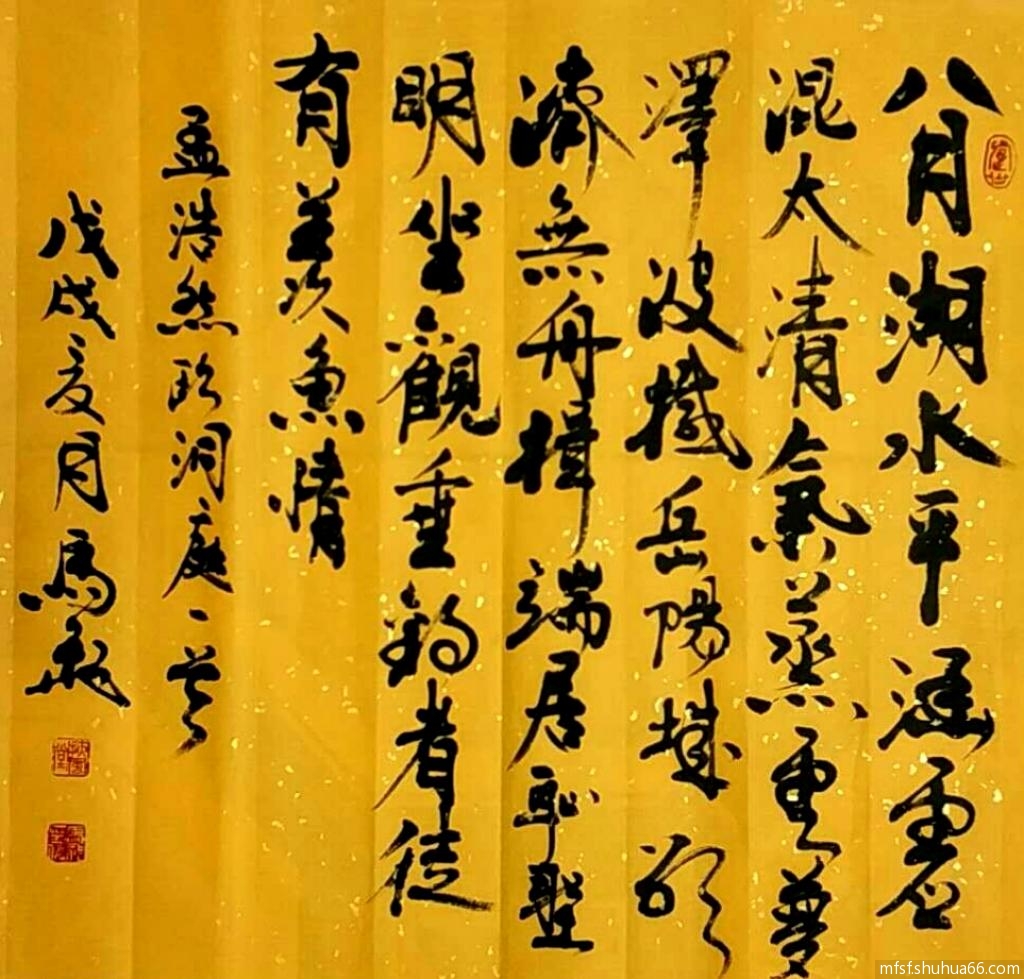 八月湖水平涵虛
混太清氣蒸雲夢
澤波撼岳陽城欲
濟無舟楫端居恥聖
明坐觀垂釣者徒
有羨魚情
孟浩然臨洞庭一首
戊戌夏月馬
mfsf.shuhua66.com